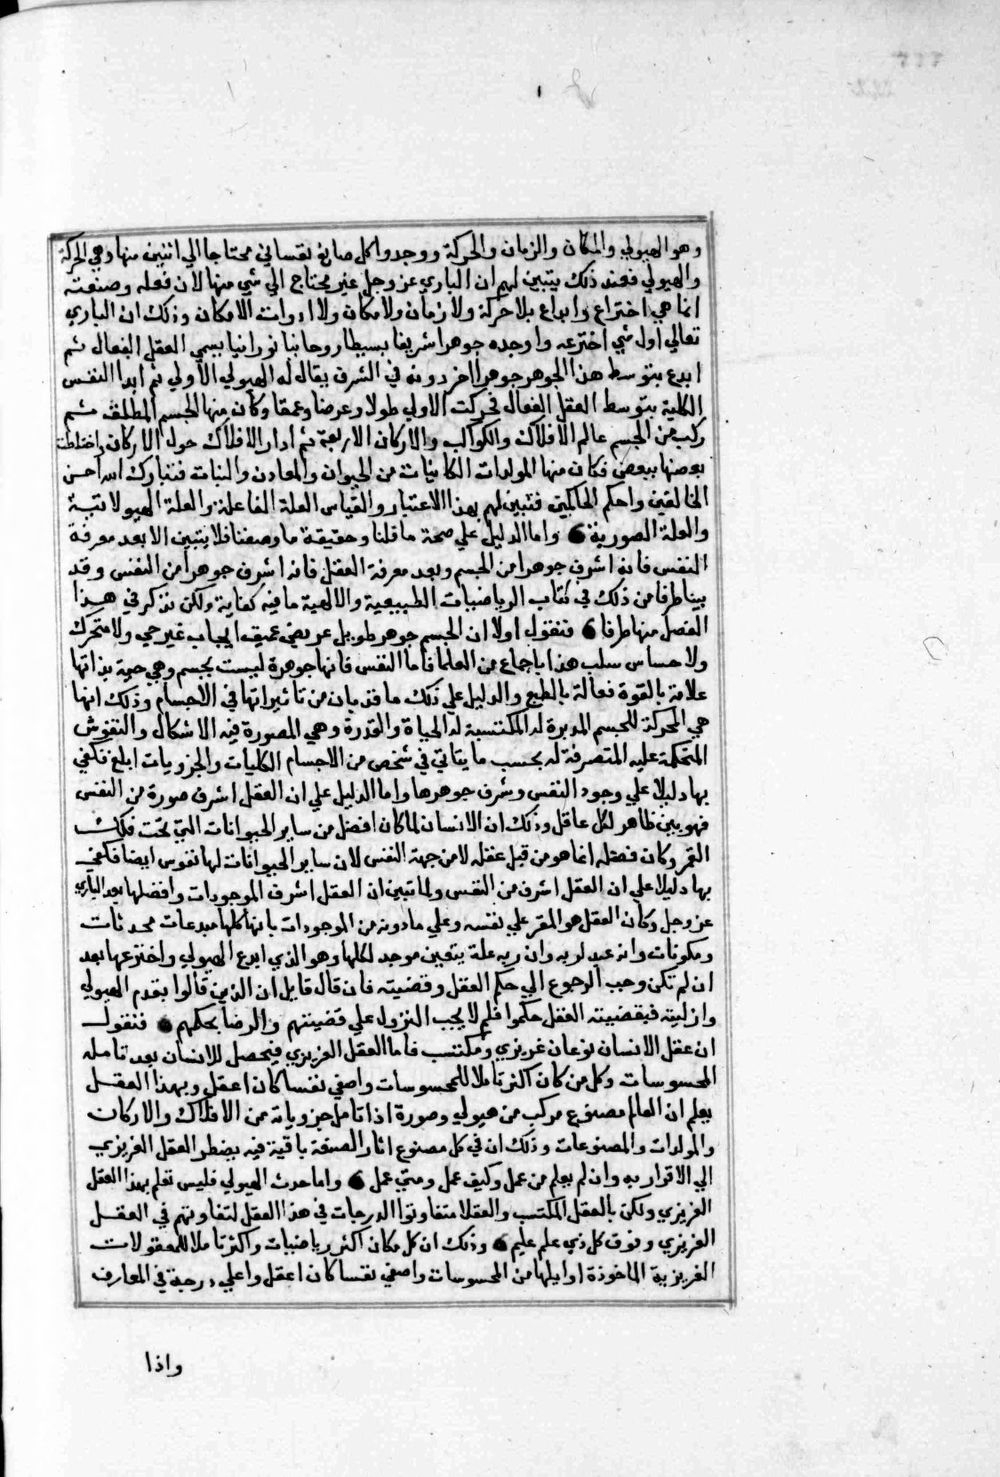 وهو الهيولي والمكان والزمان والحركة ووجدوا كل صانع نفساني محتاجا الي اثنين منها وهي الحركة
والهيولي فعند ذلك يتبين لهم ان الباري عز وجل غير محتاج الي شي منها لان فعله وصنعته
انما هي اختراع وابداع بلا حركة ولا زمان ولا مكان ولا ادوات الامكان وذلك ان الباري
تعالي اول شي اخترعه واوجده جوهرا شريفا بسيطا روحانيا نورانيا يسمي العقل الفعال ثم
ابدع بتوسط هذا الجوهر جوهرا اخر دونه في الشرف يقال له الهيولي الاولي ثم ابدا النفس
الكلية بتوسط العقل الفعال فحركت الاولي طولا وعرضا وعمقا وكان منها الجسم المطلق ثم
ركب من الجسم عالم الافلاك والكواكب والاركان الاربعة ثم ادار الافلاك حول الاركان واختلطت
بعضها ببعض فكان منها المولدات الكاينات من الحيوان والمعادن والنبات فتبارك الله احسن
الخالقين واحكم الحاكمين فتبين لهم بهذا الاعتبار والقياس العلة الفاعلة والعلة الهيولانية
والعلة الصورية 6 واما الدليل علي صحة ما قلنا وحقيقة ما وصفنا فلا يتبين الا بعد معرفة
النفس فانه اشرف جوهرا من الجسم وبعد معرفة العقل فانه اشرف جوهرا من النفس وقد
بينا طرفا من ذلك في كتاب الرياضيات الطبيعية والالهية ما فيه كفاية ولكن نذكر في هذا
الفصل منها طرفا 6 فنقول اولا ان الجسم جوهر طويل عريض عميق ايجاب غير حي ولا متحرك
ولا حساس سلب هذا باجماع من العلما فاما النفس فانها جوهرة ليست بجسم وهي حية بذاتها
علامة بالقوة فعالة بالطبع والدليل علي ذلك ما قد بان من تاثيراتها في الاجسام وذلك انها
هي المحركة للجسم المدبرة له المكتسبة له الحياة والقدرة وهي المصورة فيه الاشكال والنقوش
المتحكمة عليه المتصرفة له بحسب ما يتاتي في شخص من الاجسام الكليات والجزويات ابلغ فكفي
بها دليلا علي وجود النفس وشرف جوهرها واما الدليل علي ان العقل اشرف صورة من النفس
فهو بين ظاهر لكل عاقل وذلك ان الانسان لما كان افضل من ساير الحيوانات التي تحت فلك
القمر وكان فضله انما هو من قبل عقله لا من جهة النفس لان ساير الحيوانات لها نفوس ايضا فكفي
بها دليلا علي ان العقل اشرف من النفس ولما تبين ان العقل اشرف الموجودات وافضلها بعد الباري
عز وجل وكان العقل هو المقر علي نفسه وعلي ما دونه من الموجودات بانها كلها مبدعات محدثات
ومكونات وانه عبد لربه وان ربه علة يتقين موجد لكلها وهو الذي ابدع الهيولي واخترعها بعد
ان لم تكن وجب الرجوع الي حكم العقل وقضيته فان قال قايل ان الذين قالوا بقدم الهيولي
وازليته فبقضيته العقل حكموا فلم لا يجب النزول علي قضيتهم والرضا بحكمهم 6 فنقول
ان عقل الانسان نوعان غريزي ومكتسب فاما العقل الغريزي فيحصل للانسان بعد تامله
المحسوسات وكل من كان اكثر تاملا للمحسوسات واصفي نفسا كان اعقل وبهذا العقل
يعلم ان العالم مصنوع مركب من هيولي وصورة اذا تامل جزوياته من الافلاك والاركان
والمولدات والمصنوعات وذلك ان في كل مصنوع اثار الصنعة باقية فيه يضطر العقل الغريزي
الي الاقرار به وان لم يعلم من عمل وكيف عمل ومتي عمل 6 واما حدث الهيولي فليس تعلم بهذا العقل
الغريزي ولكن بالعقل المكتسب والعقلا متفاوتوا الدرجات في هذا العقل لتفاوتهم في العقل
الغريزي وفوق كل ذي علم عليم 6 وذلك ان كل من كان اكثر رياضيات واكثر تاملا للمعقولات
الغريزية الماخوذة اوايلها من المحسوسات واصفي نفسا كان اعقل واعلي درجة في المعارف
واذا